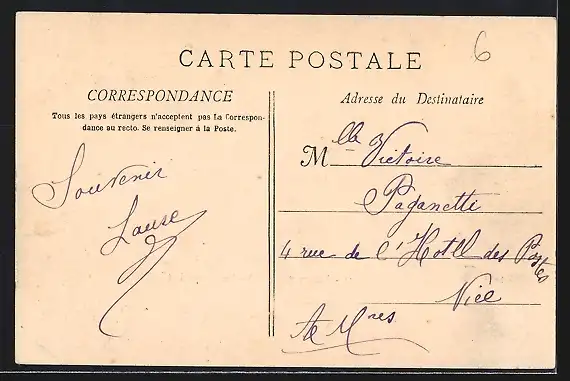 6
CARTE POSTALE
CORRESPONDANCE
Tous les pays étrangers n'acceptent pas La Correspon-
dance au recto. Se renseigner à la Poste.
Souvenir
Adresse du Destinataire
Mlle Victoire
Paganetti
4 rue de l'Hotll des Postes
Nice
Ae Mres